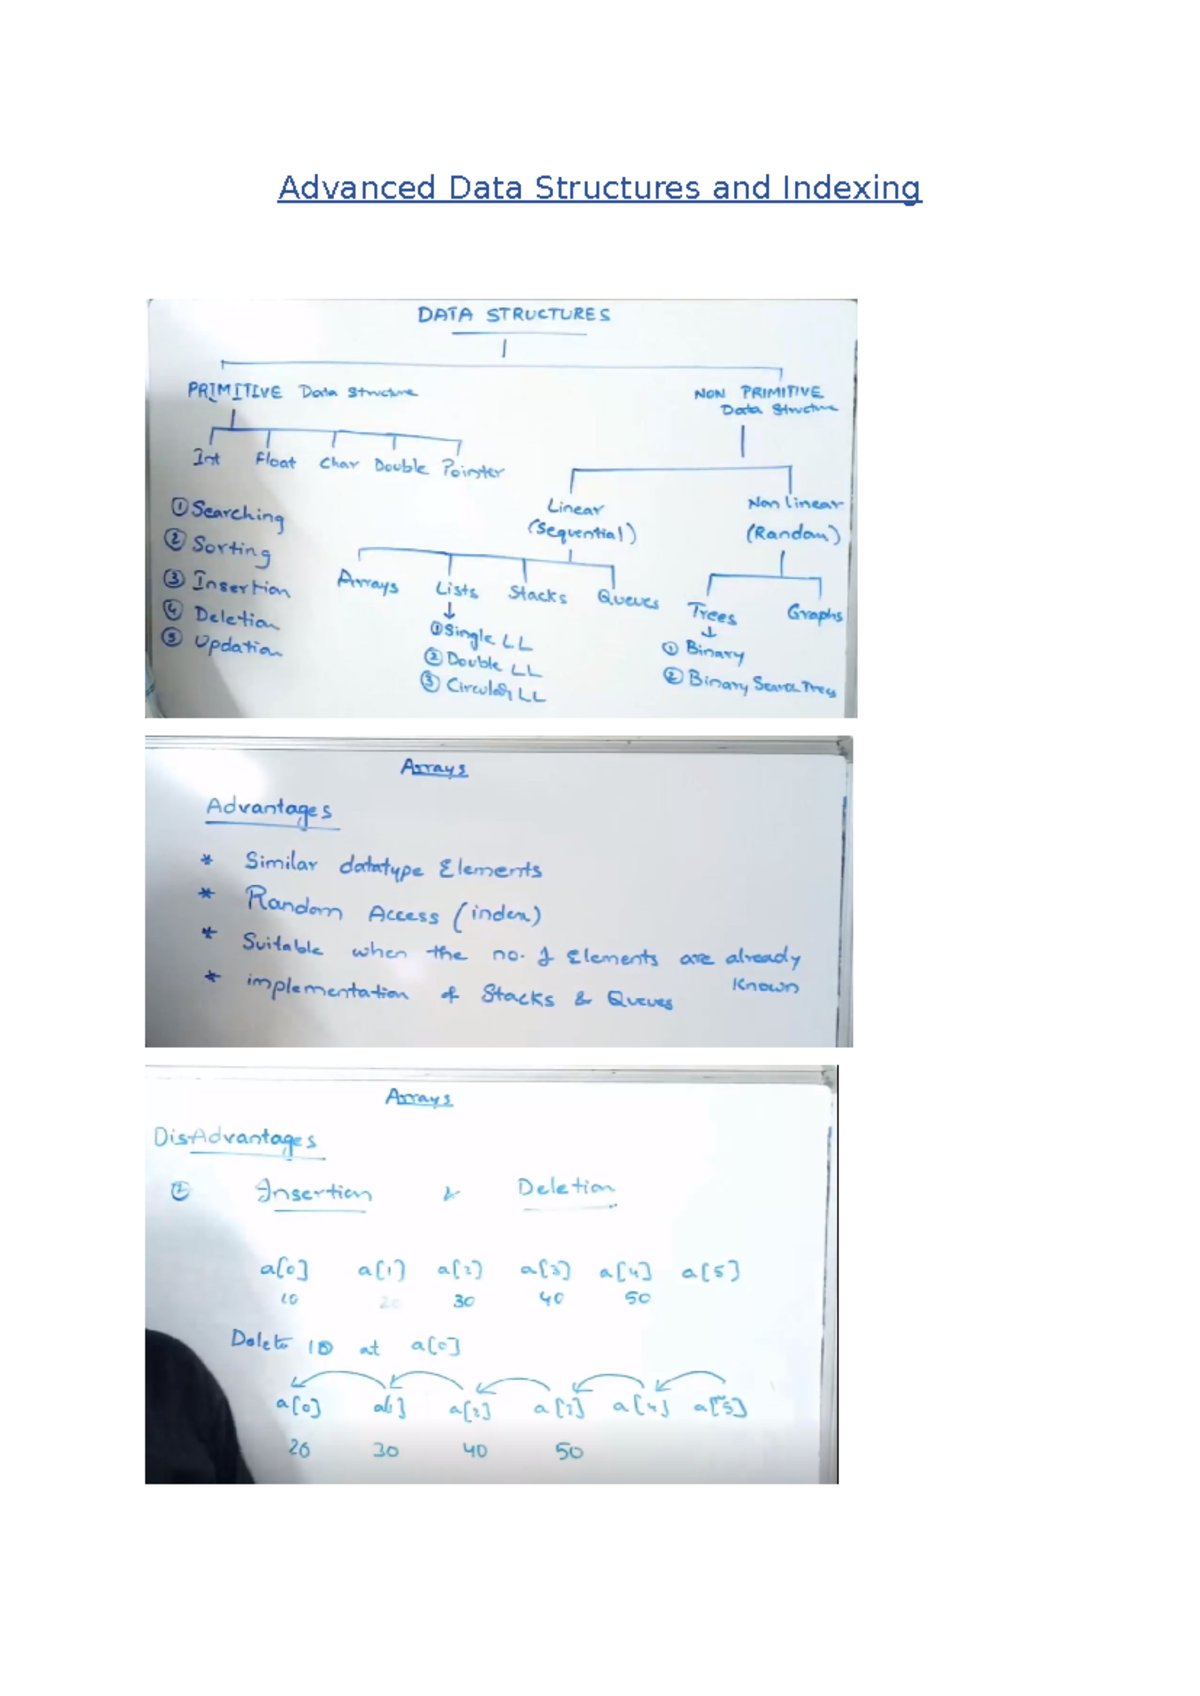 Advanced Data Structures and Indexing
DATA STRUCTURES
PRIMITIVE Data Structure
NON PRIMITIVE
Data Structure
Int Float Char Double Pointer
Linear
(Sequential)
Non linear
(Random)
① Searching
② Sorting
③ Insertion
④ Deletion
⑤ Updation
Arrays Lists Stacks Queues
① Single LL
② Double LL
③ Circular LL
Trees Graphs
① Binary
② Binary Search Trees
Arrays
Advantages
* Similar datatype Elements
* Random Access (index)
* Suitable when the no. of Elements are already
Known
* implementation of Stacks & Queues
Arrays
DisAdvantages
② Insertion & Deletion
a[0] a[1] a[2] a[3] a[4] a[5]
10 20 30 40 50
Delete 10 at a[0]
a[0] a[1] a[2] a[3] a[4] a[5]
20 30 40 50